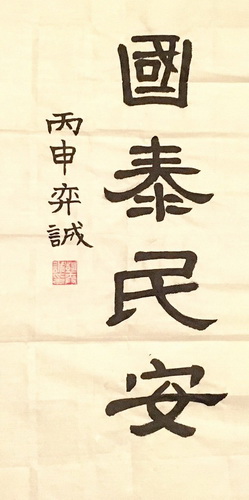 國泰民安
丙申弈誠